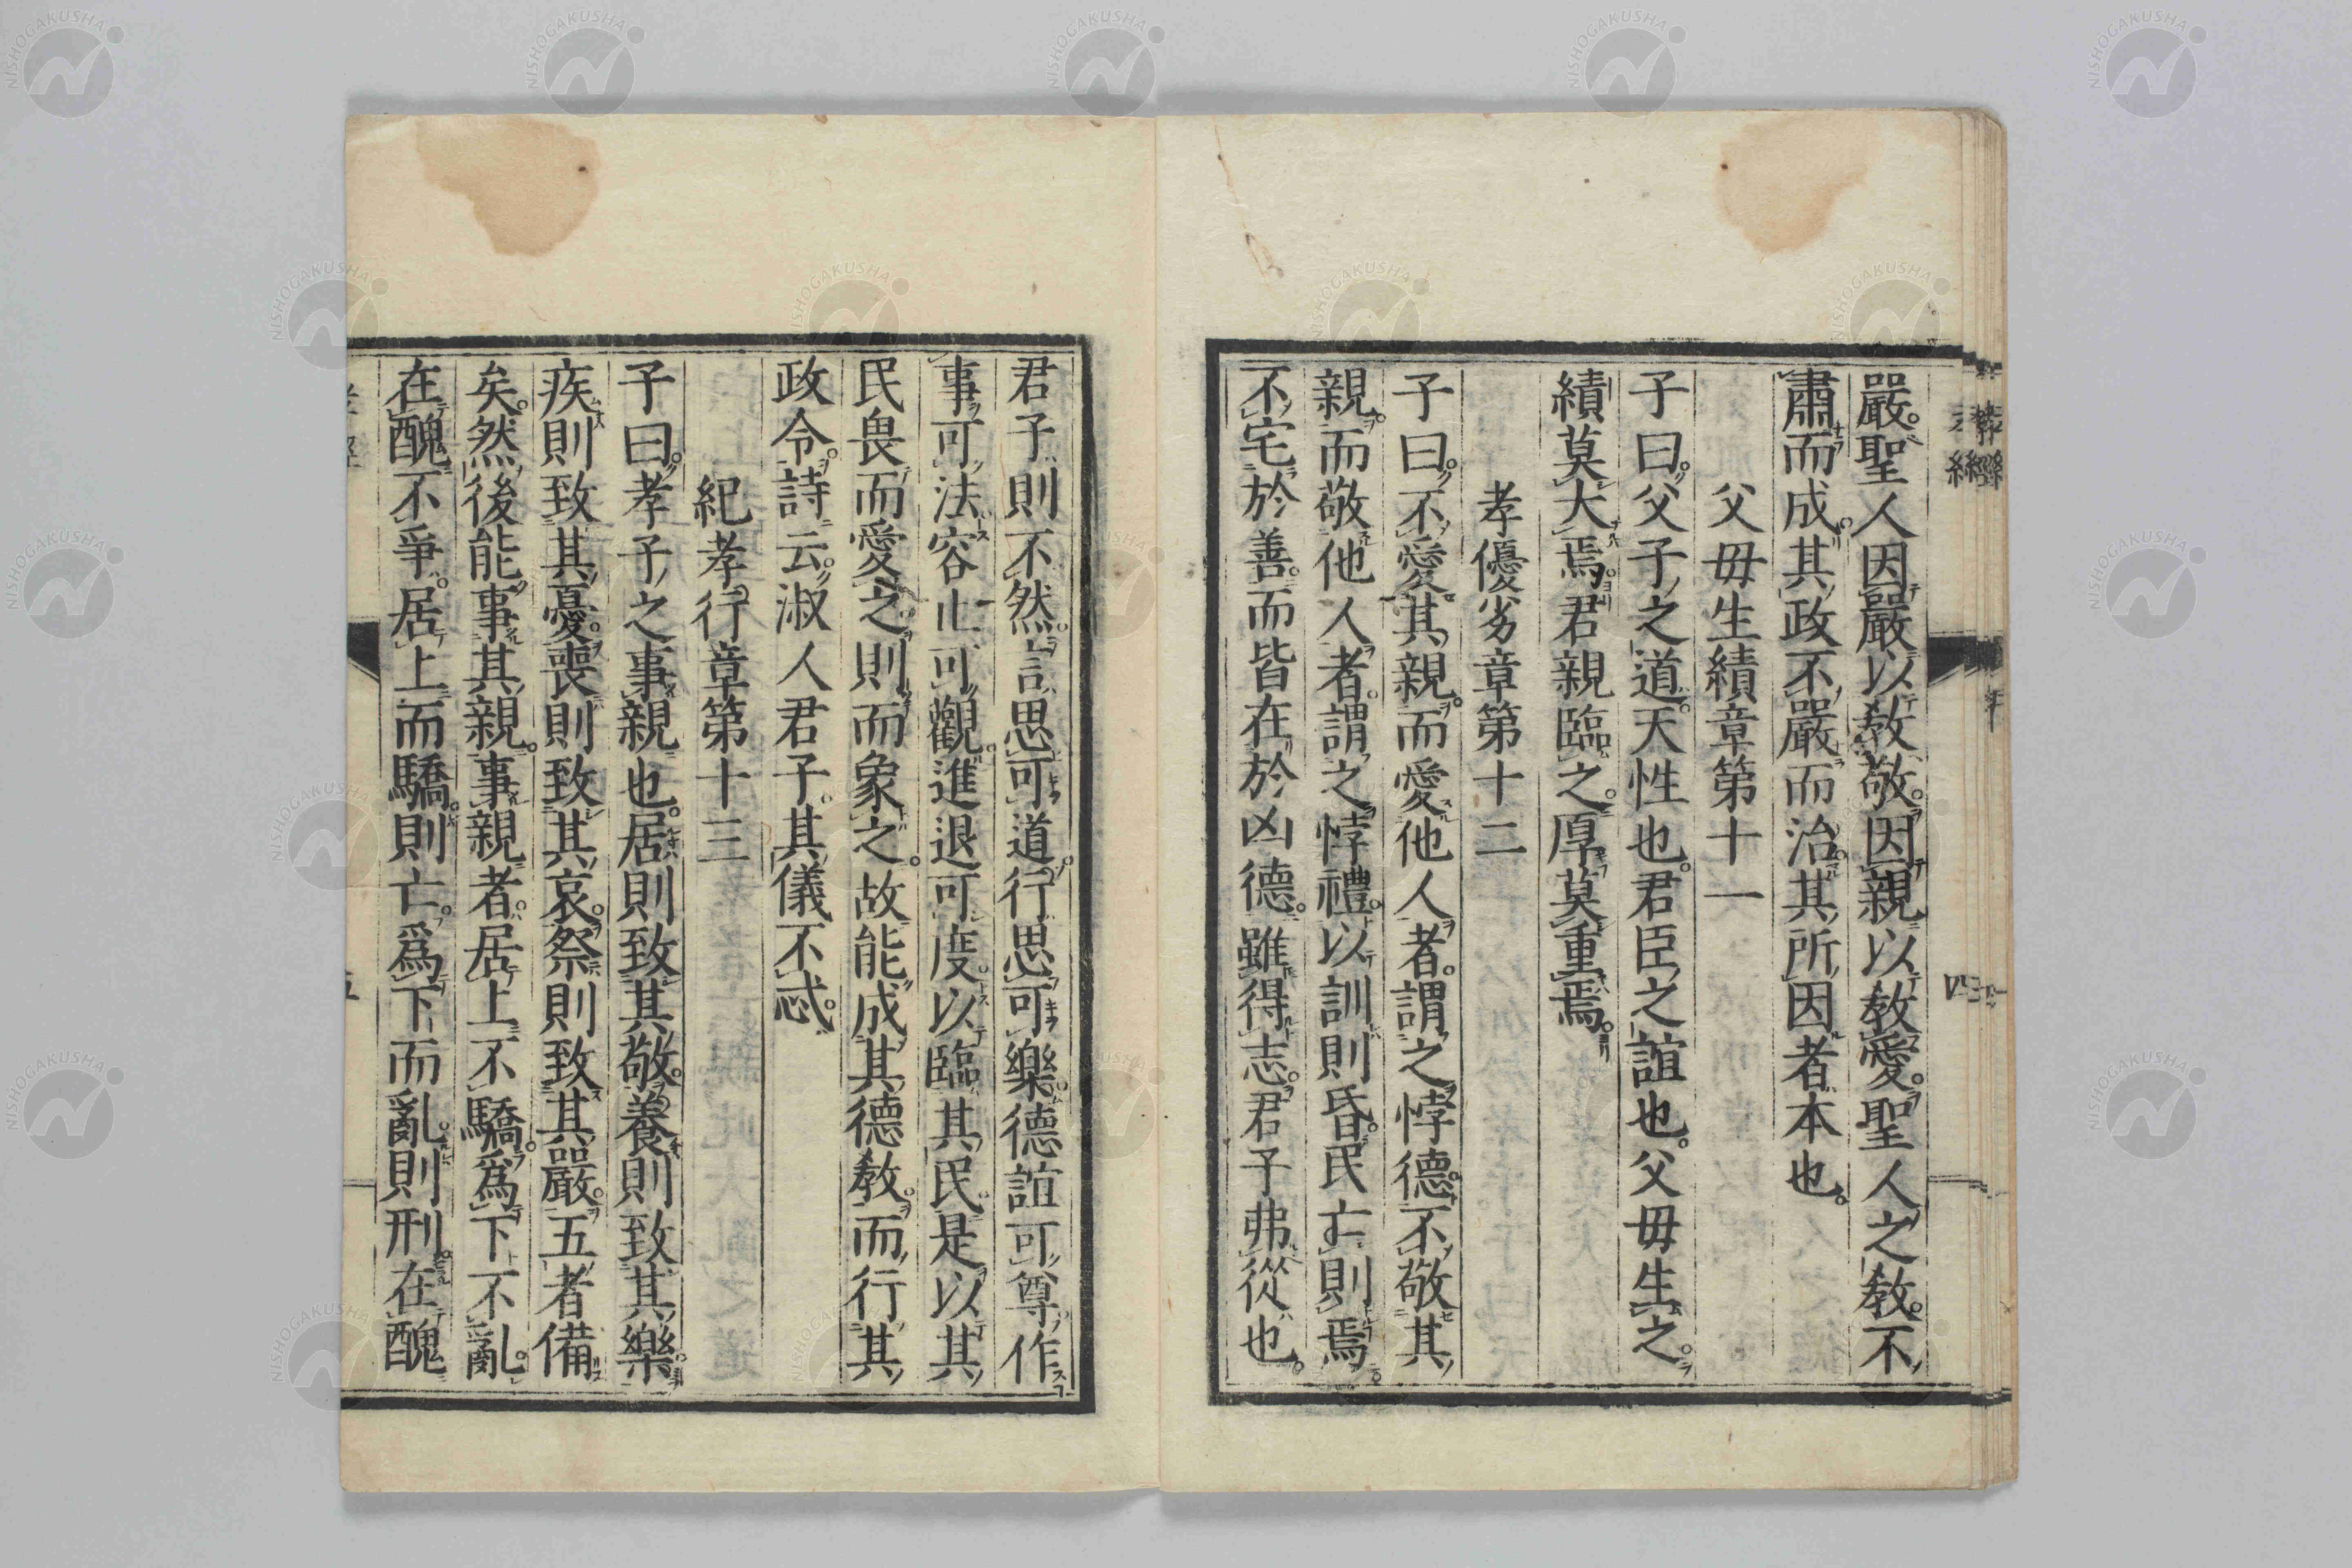 嚴。聖人因嚴以教敬。因親以教愛。聖人之教。不
肅而成。其政不嚴而治。其所因者本也。
父毋生績章第十一
子曰。父子之道。天性也。君臣之誼也。父毋生之。
績莫大焉。君親臨之。厚莫重焉。
孝優劣章第十二
子曰。不愛其親。而愛他人者。謂之悖德。不敬其
親。而敬他人者。謂之悖禮。以訓則昏。民亡則焉。
不宅於善。而皆在於凶德。雖得志。君子弗從也。
君子則不然。言思可道。行思可樂。德誼可尊。作
事可法。容止可觀。進退可度。以臨其民。是以其
民畏而愛之。則而象之。故能成其德教。而行其
政令。詩云。淑人君子。其儀不忒。
紀孝行章第十三
子曰。孝子之事親也。居則致其敬。養則致其樂。
疾則致其憂。喪則致其哀。祭則致其嚴。五者備
矣。然後能事其親。事親者。居上不驕。爲下不亂。
在醜不爭。居上而驕。則亡。爲下而亂。則刑。在醜
NISHOGAKUSHA